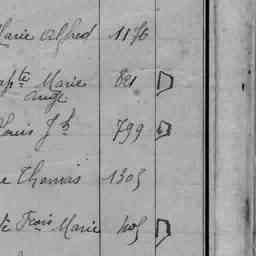 Marie Alfred 1176
apte Marie 801
Ange
Louis Jh 799
e Thomas 1303
te Frois Marie 405